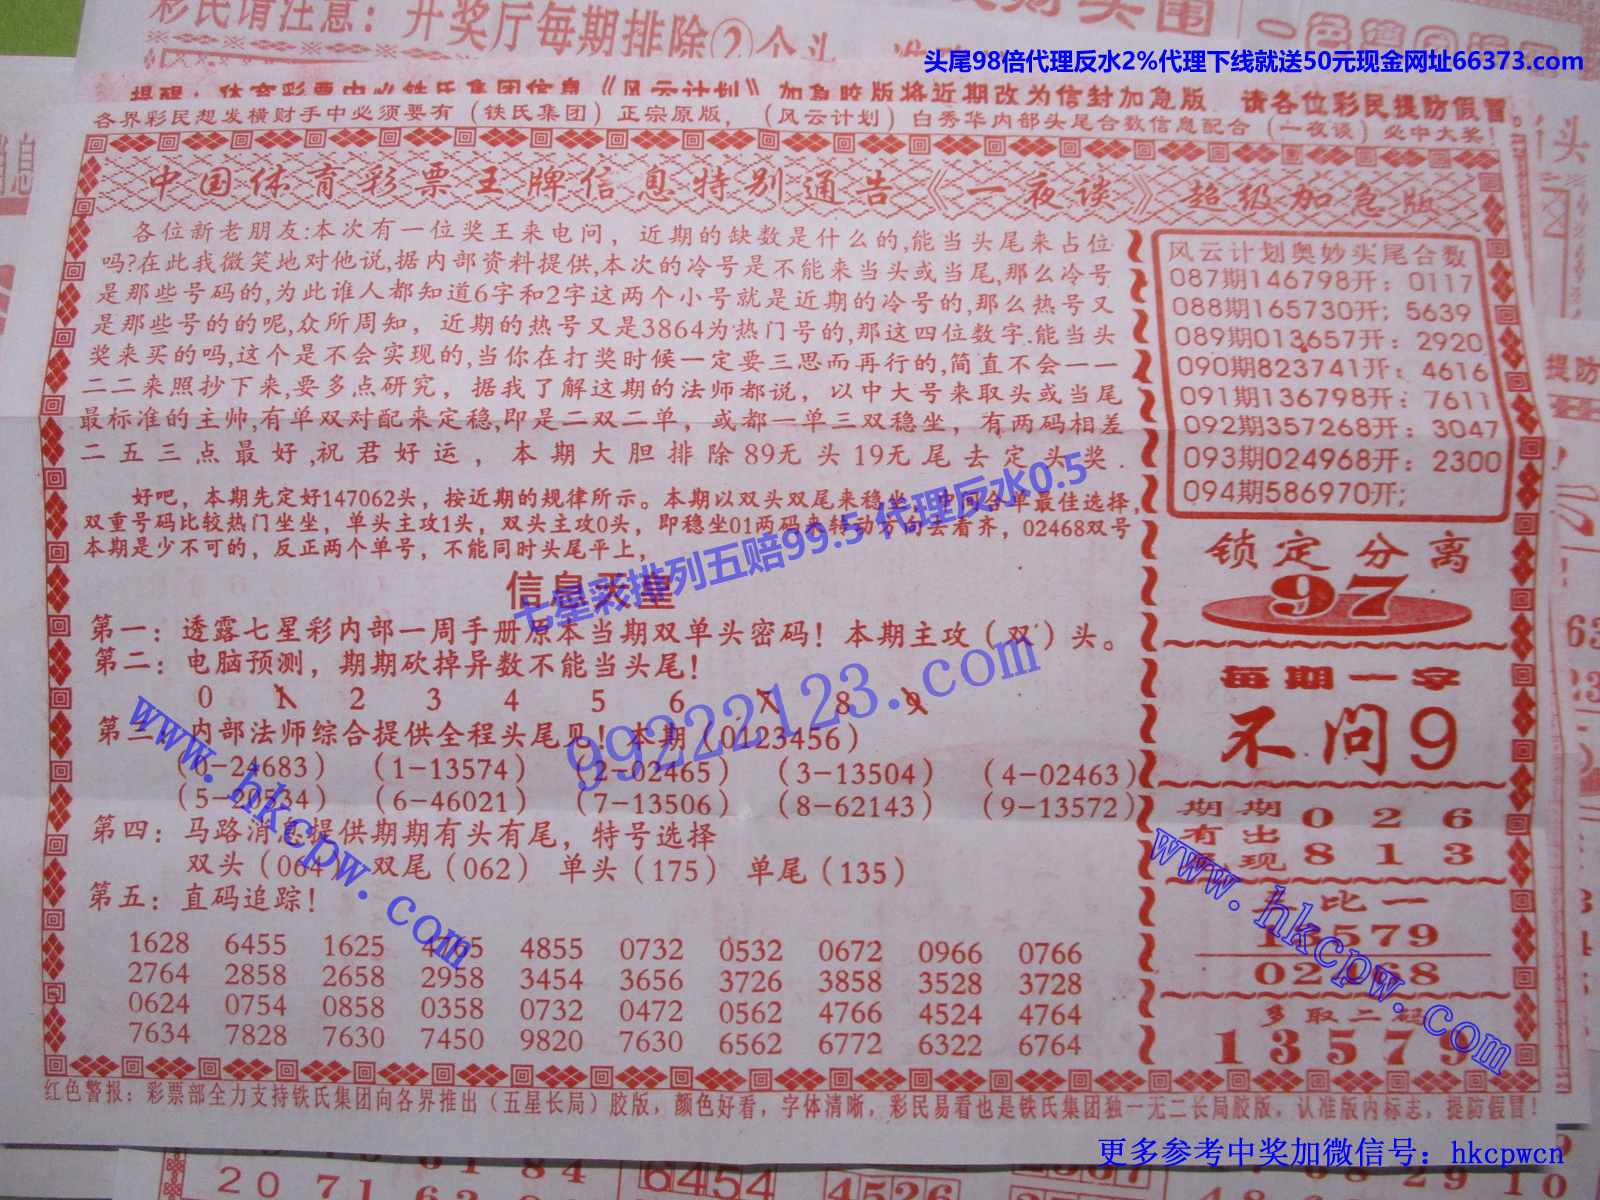 彩民请注意：开奖厅每期排除②个头
头尾98倍代理反水2%代理下线就送50元现金网址66373.com
提醒：体育彩票中必铁氏集团信息《风云计划》加急胶版将近期改为信封加急版 请各位彩民提防假冒。
各界彩民想发横财手中必须要有（铁氏集团）正宗原版，（风云计划）白秀华内部头尾合数信息配合（一夜谈）必中大奖！
中国体育彩票王牌信息特别通告《一夜谈》超级加急版
各位新老朋友:本次有一位奖王来电问，近期的缺数是什么的,能当头尾来占位
吗?在此我微笑地对他说,据内部资料提供,本次的冷号是不能来当头或当尾,那么冷号
是那些号码的,为此谁人都知道6字和2字这两个小号就是近期的冷号的,那么热号又
是那些号的的呢,众所周知，近期的热号又是3864为热门号的,那这四位数字.能当头
奖来买的吗,这个是不会实现的,当你在打奖时候一定要三思而再行的,简直不会一一
二二来照抄下来,要多点研究，据我了解这期的法师都说，以中大号来取头或当尾
最标准的主帅,有单双对配来定稳,即是二双二单，或都一单三双稳坐，有两码相差
二五三点最好,祝君好运，本期大胆排除89无头19无尾去定头奖.
好吧，本期先定好147062头，按近期的规律所示。本期以双头双尾来稳坐，中间合单最佳选择,
双重号码比较热门坐坐，单头主攻1头，双头主攻0头，即稳坐01两码来转动方向去看齐，02468双号
本期是少不可的，反正两个单号，不能同时头尾平上，
信息天皇
第一：透露七星彩内部一周手册原本当期双单头密码！本期主攻（双）头。
第二：电脑预测，期期砍掉异数不能当头尾！
0 1 2 3 4 5 6 7 8 9
第三：内部法师综合提供全程头尾见！本期（0123456）
（0-24683）（1-13574）（2-02465）（3-13504）（4-02463）
（5-20534）（6-46021）（7-13506）（8-62143）（9-13572）
第四：马路消息提供期期有头有尾，特号选择
双头（064）双尾（062）单头（175）单尾（135）
第五：直码追踪！
1628 6455 1625 4855 0732 0532 0672 0966 0766
2764 2858 2658 2958 3454 3656 3726 3858 3528 3728
0624 0754 0858 0358 0732 0472 0562 4766 4524 4764
7634 7828 7630 7450 9820 7630 6562 6772 6322 6764
风云计划奥妙头尾合数
087期146798开：0117
088期165730开；5639
089期013657开：2920
090期823741开：4616
091期136798开：7611
092期357268开：3047
093期024968开：2300
094期586970开；
锁定分离
97
每期一字
不问9
期期 0 2 6
有出
现 8 1 3
比一
13579
02468
多取二码
13579
红色警报：彩票部全力支持铁氏集团向各界推出（五星长局）胶版，颜色好看，字体清晰，彩民易看也是铁氏集团独一无二长局胶版，认准版内标志，提防假冒！
七星彩排列五赔99.5 代理反水0.5
99222123.com
www.hkcpw.com
www.hkcpw.com
更多参考中奖加微信号：hkcpwcn
提防
20 71
6454
4526